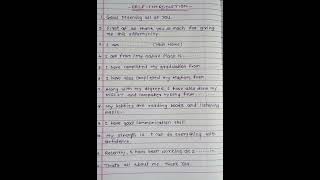 -SELF-INTRODUCTION-
1. Good Morning all of you.
2. First of all thank you so much for giving
me this opportunity.
3. I am (Your Name)
4. I am from / my native place is
5. I have completed my graduation from
6. I have also completed my Masters from
7. Along with my degrees, I have also done my
MSCIT and computer typing from
8. My hobbies are reading books and listening
music.
9. I have good communication skill.
10. My strength is I can do everything with
confidence.
11. Recently, I have been working as a
12. That's all about me. Thank you.